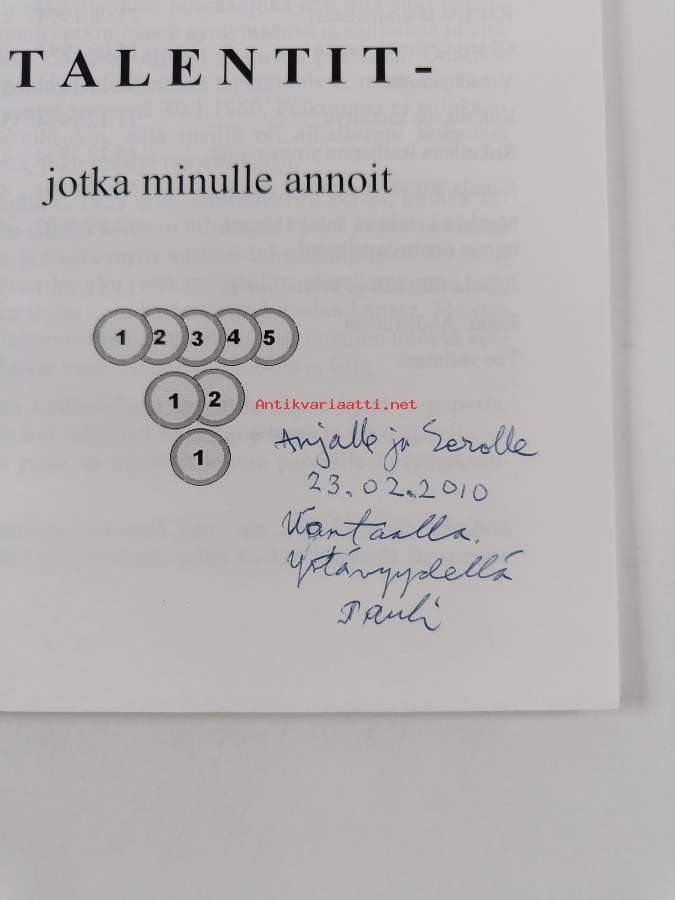 TALENTIT-
jotka minulle annoit
1 2 3 4 5
1 2
1
Antikvariaatti.net
Anjalle ja Eerolle
23.02.2010
Vantaalla.
Ystävyydellä
Pauli